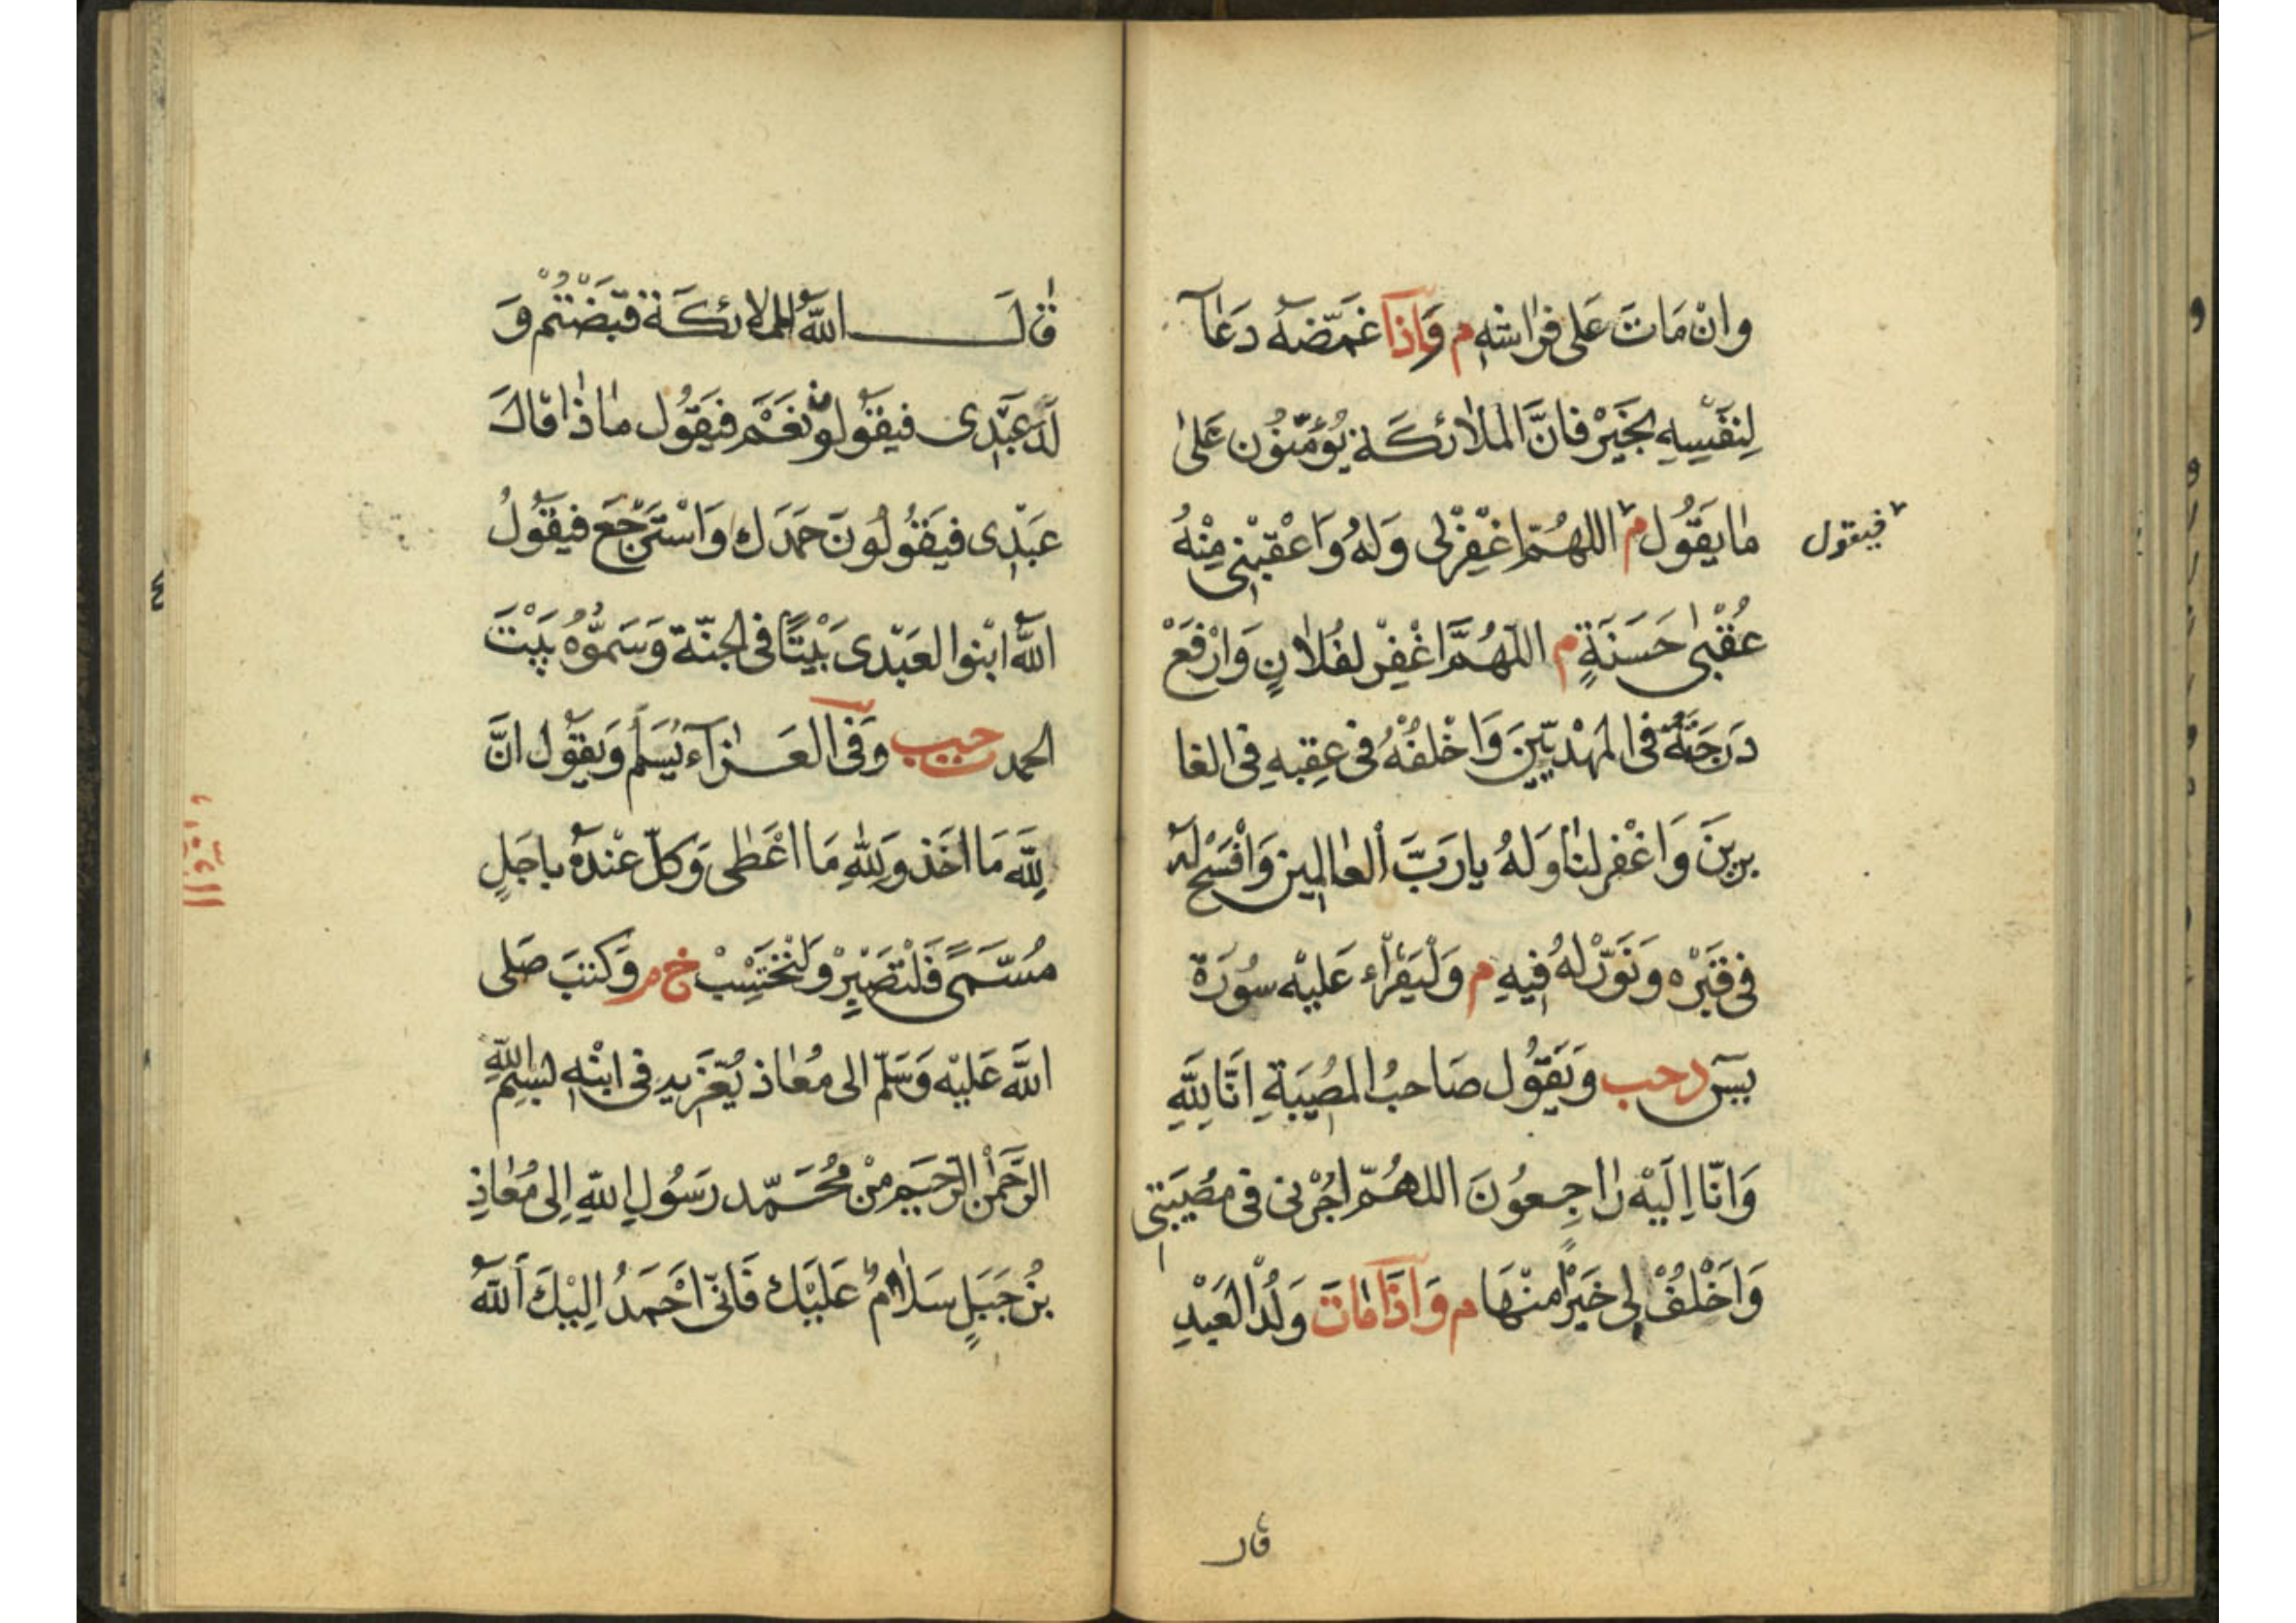 وان مَاتَ عَلى فِرَاشِهِ م وَاذَا غَمَّضَهُ دَعَا
لِنَفْسِهِ بِخَيْرٍ فَانَّ المَلَائكَة يُؤَمِّنُون عَلىٰ
مَا يَقُول م اللهُمَّ اغْفِرْلى وَلَهُ وَاعْقِبْنِى مِنْهُ
فيقول
عُقْبىٰ حَسَنَةٍ م اللّهُمَّ اغْفِرْ لِفُلَانٍ وَارْفَعْ
دَرَجَتَهُ فى المَهْدِيّينَ وَاخْلُفْهُ فى عَقِبِهِ فى الغا
بِرِينَ وَاغْفِر لنَا وَلَهُ يارَبَّ العَالمِين وَافْسَحْ لَهُ
فى قَبْرِه وَنَوِّرْ لَهُ فِيهِ م وَلْيَقْرَاء عَلَيْه سُورَة
يسٓ دحب وَيَقُول صَاحبُ المُصِيبَةِ اِنَّا لِلّٰهِ
وَانَّا اِلَيْهِ رَاجِعُونَ اللهُمَّ اجُرْنى فى مصُيبَتِى
وَاخْلُفْ لِى خَيْرًا منْهَا م وَاذَا مَاتَ وَلَدُ العَبْدِ
قال
قَالَ اللّٰهُ للملائكَة قَبَضْتُمْ وَ
لَدَ عَبْدِى فيَقُولون نَعَمْ فَيَقُول مَاذَا قالَ
عَبْدِى فيَقُولُونَ حَمَدَك وَاسْتَرْجَعَ فيَقُولُ
اللّٰهُ ابْنوا لعَبْدى بَيْتًا فى الجنّة وَسَمُّوهُ بَيْتَ
الحمد حبب وَفى العَزَاء يُسَلِّم وَيَقُول انَّ
لِلّٰهِ مَا اخَذ وَلِلّٰهِ مَا اعْطٰى وَكلّ عنْدَهُ باجَلٍ
مُسَمًّى فَلْتَصْبِرْ وَلْتَحْتَسِبْ خ م وَكَتَبَ صَلى
اللّٰه عَلَيْهِ وَسَلّم الى مُعَاذ يُعَزّيهِ فى ابْنِهِ بِسْمِ اللّٰهِ
الرَّحْمٰنِ الرَّحِيمِ مِنْ مُحَمّد رَسُولِ اللّٰهِ اِلى مُعَاذِ
بْنِ جَبَلٍ سَلَامٌ عَلَيْك فَانّى احْمَدُ الَيْكَ اللّٰهَ